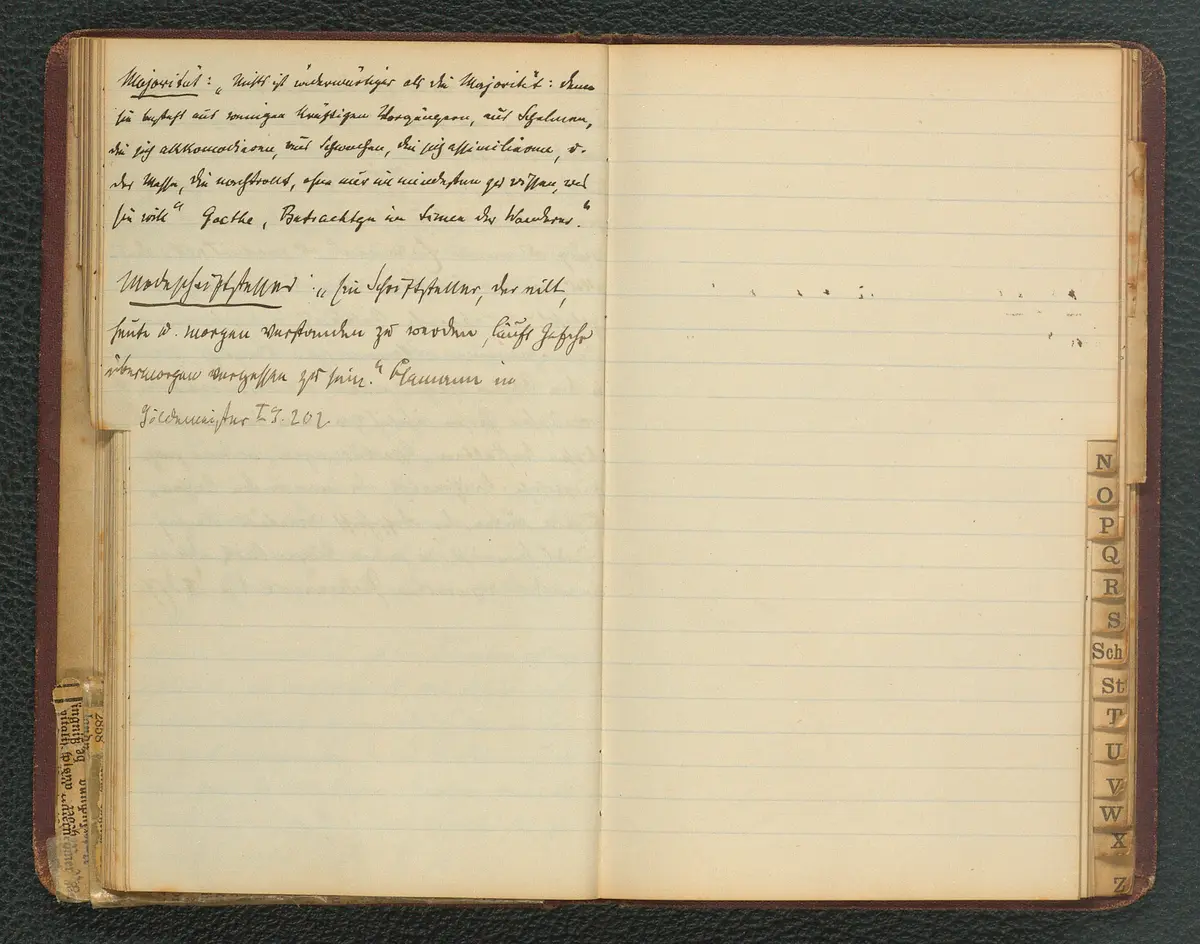 Majorität: „Nichts ist widerwärtiger als die Majorität: denn
sie besteht aus wenigen kräftigen Vorgängern, aus Schelmen,
die sich akkomodieren, aus Schwachen, die sich assimilieren, u.
der Masse, die nachtrollt, ohne nur im mindesten zu wissen, was
sie will“ Goethe, Betrachtgn im Sinne der Wanderer.“
Modeschriftsteller: „Ein Schriftsteller, der eilt,
heute u. morgen verstanden zu werden, läuft Gefahr
übermorgen vergessen zu sein.“ Hamann in
Gildemeister I S. 202.
N
O
P
Q
R
S
Sch
St
T
U
V
W
X
Z
2868